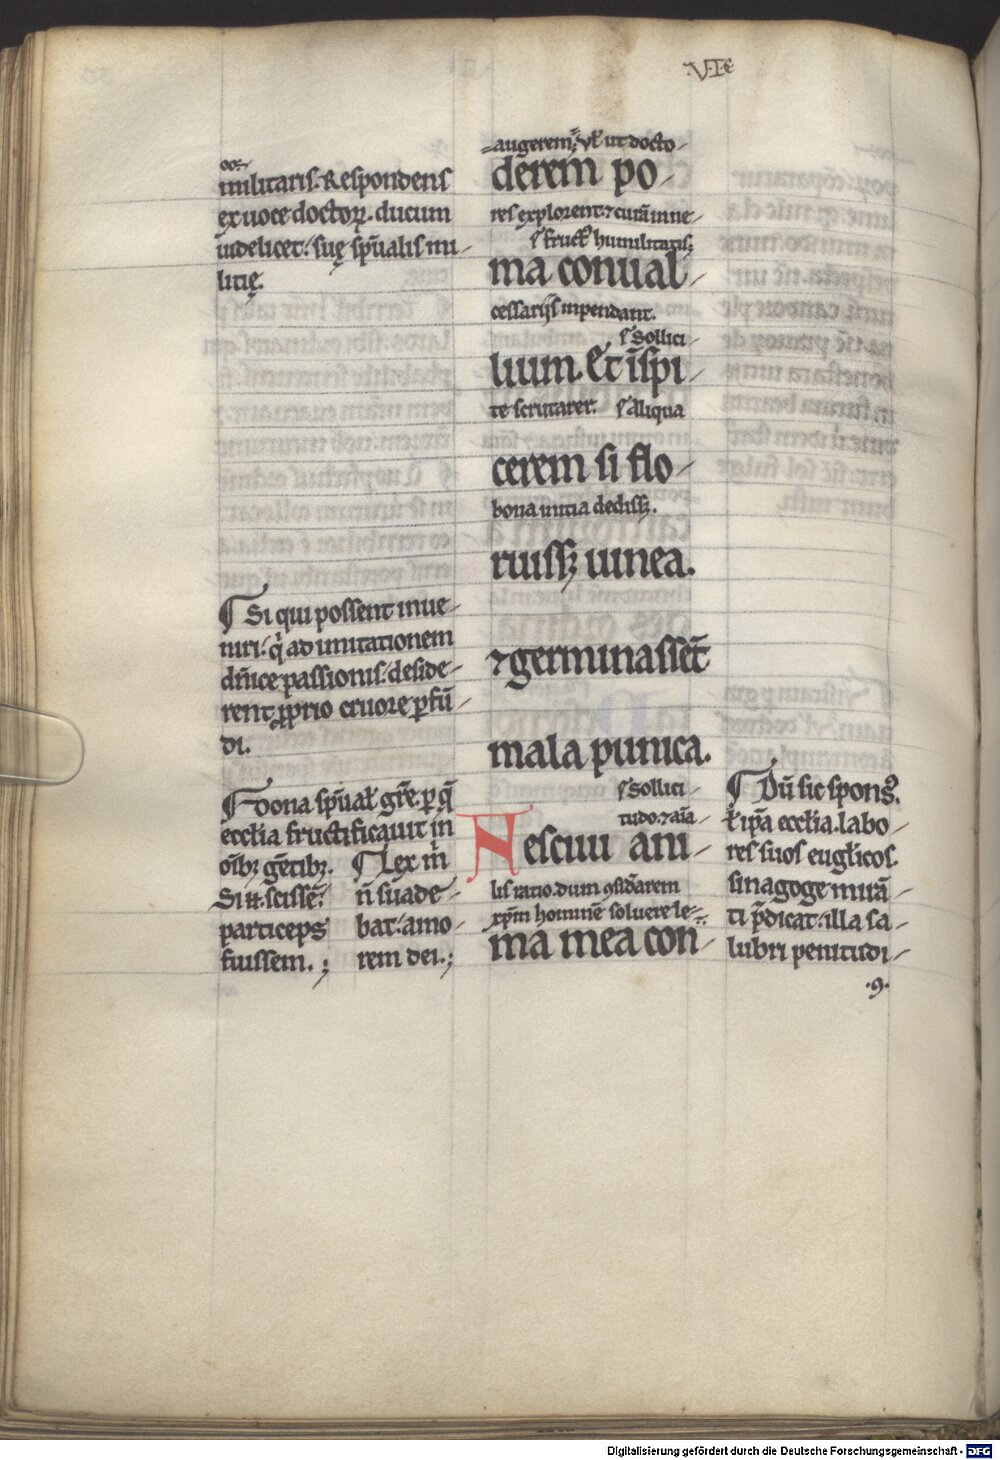 ·V·I·c
militaris. Respondens
ex uoce doctoꝝ. ducum
uidelicet. suę sp̄ualis mi-
litię.
¶ Si qui possent inue-
niri. q̇ ad imitationem
dn̄ice passionis. deside-
rent ꝓprio cruore ꝑfū-
di.
¶ dona sp̄ual̵ gr̄e. ꝑ q̄
eccl̄ia fructificauit in
oīb; gētib;.
Si n̄ scissē.
particeps
fuissem. ;
¶ Lex m̊
n̄ suade-
bat. amo-
rem dei. ;
augerem; ul̵ ut docto-
derem po-
res explorent. ⁊ curā in ne-
¶ fruct' humilitatis;
ma conual-
cessarijs inpendant.
¶ Sollici-
lium. Et īspi-
te scrutarer. ¶ Aliqua
cerem si flo-
bona initia dediss;.
ruiss; uinea.
⁊ germinassēt
mala punica.
¶ Sollici-
tudo. ⁊ aīa-
Nesciui ani-
lis ratio. dum ɔsidarem
xp̄m hominē soluere le-
ma mea con-
¶ Dū sic spons'.
l̵ ip̄a eccl̄ia. labo-
res suos eugl̵icos.
sinagoge mirā-
ti p̄dicat. illa sa-
lubri penitudi-
·9·
Digitalisierung gefördert durch die Deutsche Forschungsgemeinschaft - DFG